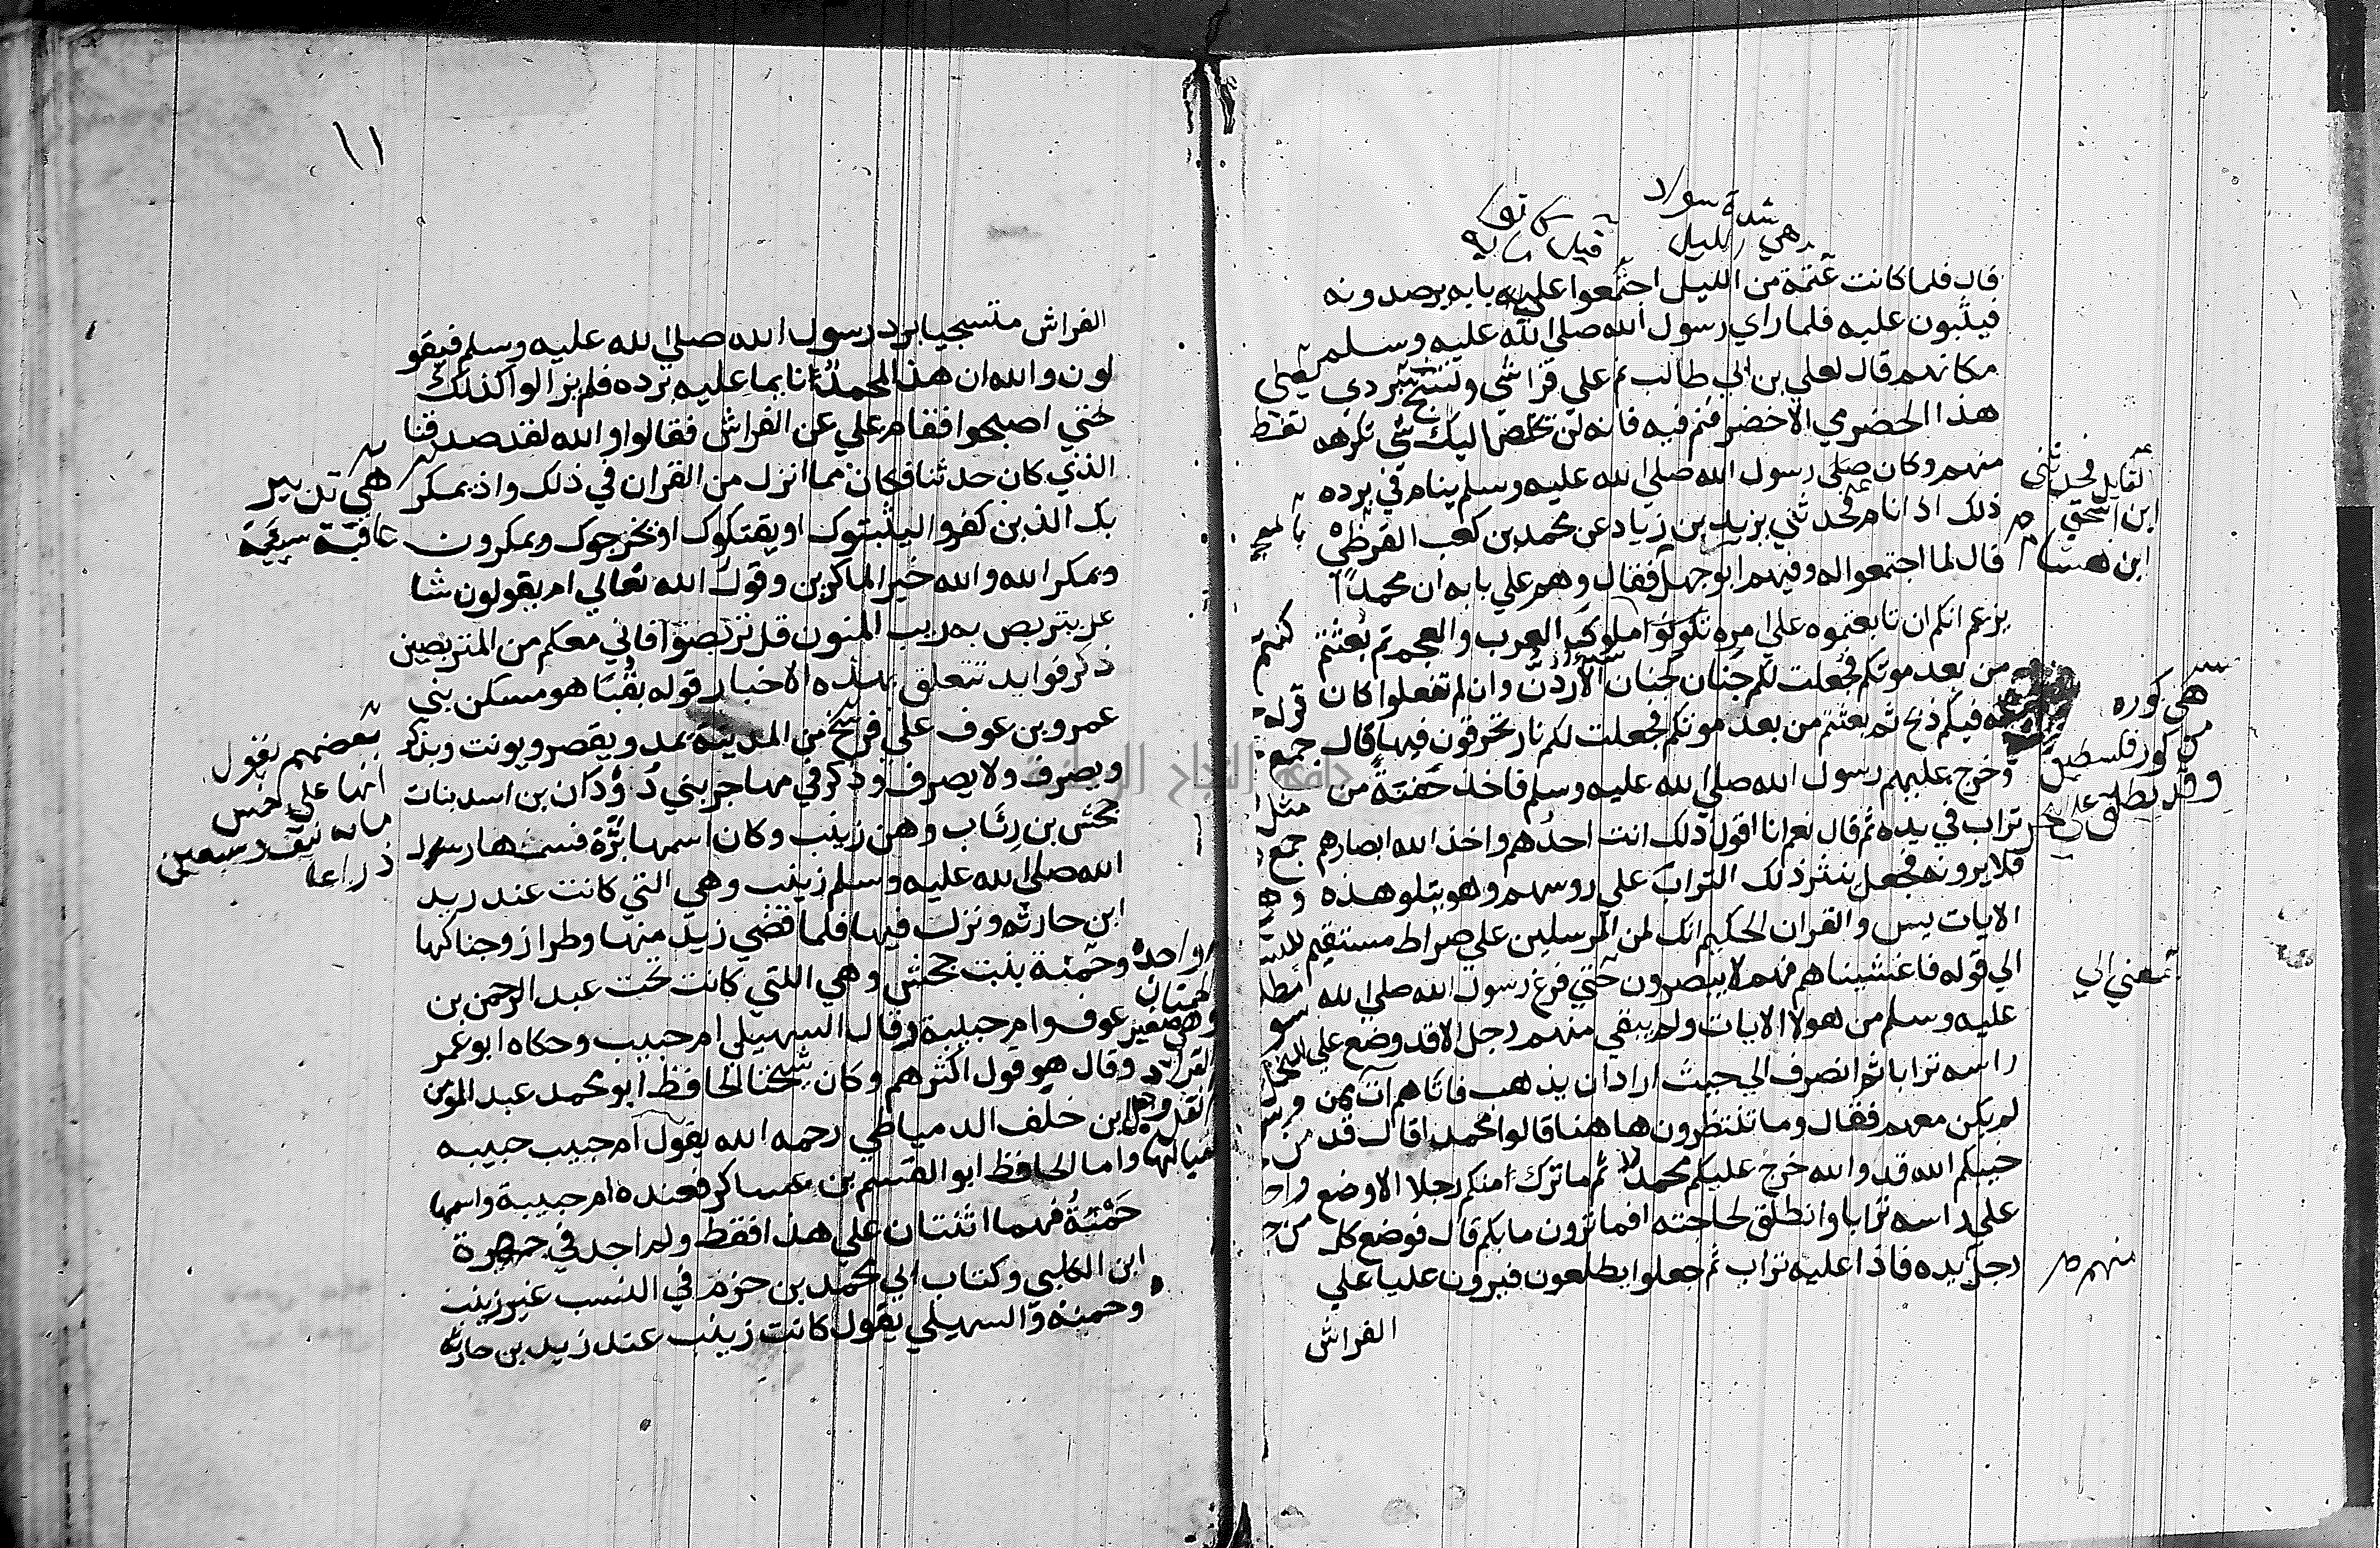 شدة سواد
هي الليل
قال فلما كانت عتمة من الليل اجتمعوا علي بابه يرصدونه
فيثبون عليه فلما راي رسول الله صلي الله عليه وسلم
مكانهم قال لعلي بن ابي طالب نم علي فراشي وتسج ببردي
هذا الحضرمي الاخضر فنم فيه فانه لن يخلص اليك شي تكرهه
منهم وكان رسول الله صلي الله عليه وسلم ينام في برده
ذلك اذا نام فحدثني يزيد بن زياد عن محمد بن كعب القرظي
قال لما اجتمعوا له وفيهم ابو جهل فقال وهم علي بابه ان محمدا
يزعم انكم ان تابعتموه علي امره تكونوا ملوك العرب والعجم ثم بعثتم
من بعد موتكم فجعلت لكم جنان كجنان الأردن وان لم تفعلوا كان
فيكم ذبح ثم بعثتم من بعد موتكم فجعلت لكم نار تحرقون فيها قال
وخرج عليهم رسول الله صلي الله عليه وسلم فاخذ حفنة من
تراب في يده ثم قال نعم انا اقول ذلك انت احدهم واخذ الله ابصارهم
فلا يرونه فجعل ينثر ذلك التراب علي روسهم وهو يتلو هذه
الايات يس والقران الحكيم انك لمن المرسلين علي صراط مستقيم
الي قوله فاغشيناهم فهم لا يبصرون حتي فرغ رسول الله صلي الله
عليه وسلم من هولا الايات ولم يبقي منهم رجل الا قد وضع علي
راسه ترابا ثم انصرف الي حيث اراد ان يذهب فاتاهم آت ممن
لم يكن معهم فقال وما تنتظرون هاهنا قالوا محمدا قال قد
خيبكم الله قد والله خرج عليكم محمد ثم ما ترك منكم رجلا الا وضع
علي راسه ترابا وانطلق لحاجته افما ترون ما بكم قال فوضع كل
رجل يده فاذا عليه تراب ثم جعلوا يطلعون فيرون عليا علي
الفراش
ابن اسحق
ابن هشام
هي كوره
من كور فلسطين
وقد يطلق علي
بمعني الي
منهم
١١
الفراش متسجيا ببرد رسول الله صلي الله عليه وسلم فيقو
لون والله ان هذا لمحمد نايما عليه برده فلم يزالوا كذلك
حتي اصبحوا فقام علي عن الفراش فقالوا والله لقد صدقنا
الذي كان حدثنا فكان مما انزل من القران في ذلك واذ يمكر
بك الذين كفروا ليثبتوك او يقتلوك او يخرجوك ويمكرون
ويمكر الله والله خير الماكرين وقول الله تعالي ام يقولون شا
عر يتربص به ريب المنون قل تربصوا فاني معكم من المتربصين
ذكر فوايد تتعلق بهذه الاخبار قوله بقبا هو مسكن بني
عمرو بن عوف علي فرسخ من المدينة يمد ويقصر ويونث ويذكر
ويصرف ولا يصرف وذكر في مهاجر بني دودان بن اسد بنات
جحش بن رئاب وهن زينب وكان اسمها برة فسماها رسول
الله صلي الله عليه وسلم زينب وهي التي كانت عند زيد
ابن حارثه ونزلت فيها فلما قضي زيد منها وطرا زوجناكها
وحمنة بنت جحش وهي اللتي كانت تحت عبد الرحمن بن
عوف وام حبيبة وقال السهيلي ام حبيب وحكاه ابو عمر
وقال هو قول اكثرهم وكان شيخنا الحافظ ابو محمد عبد المومن
بن خلف الدمياطي رحمه الله يقول ام حبيب حبيبه
واما الحافظ ابو القسم بن عساكر فعنده ام حبيبة واسمها
حمنة فهما اثنتان علي هذا فقط ولم اجد في جمهرة
ابن الكلبي وكتاب ابي محمد بن حزم في النسب غير زينب
وحمنه والسهيلي يقول كانت زينب عند زيد بن حارثه
هي تدبير
عاقبة سيئة
بعضهم يقول
انها علي خمس
ذراعا